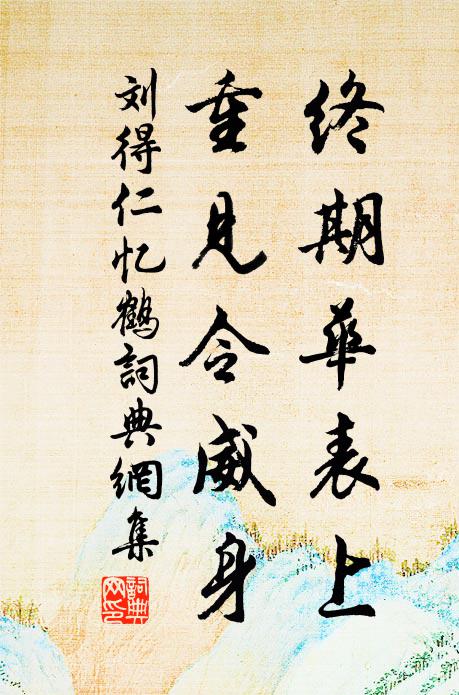 终期華表上
重見令威身
刘得仁忆鶴詞典網集
詞典